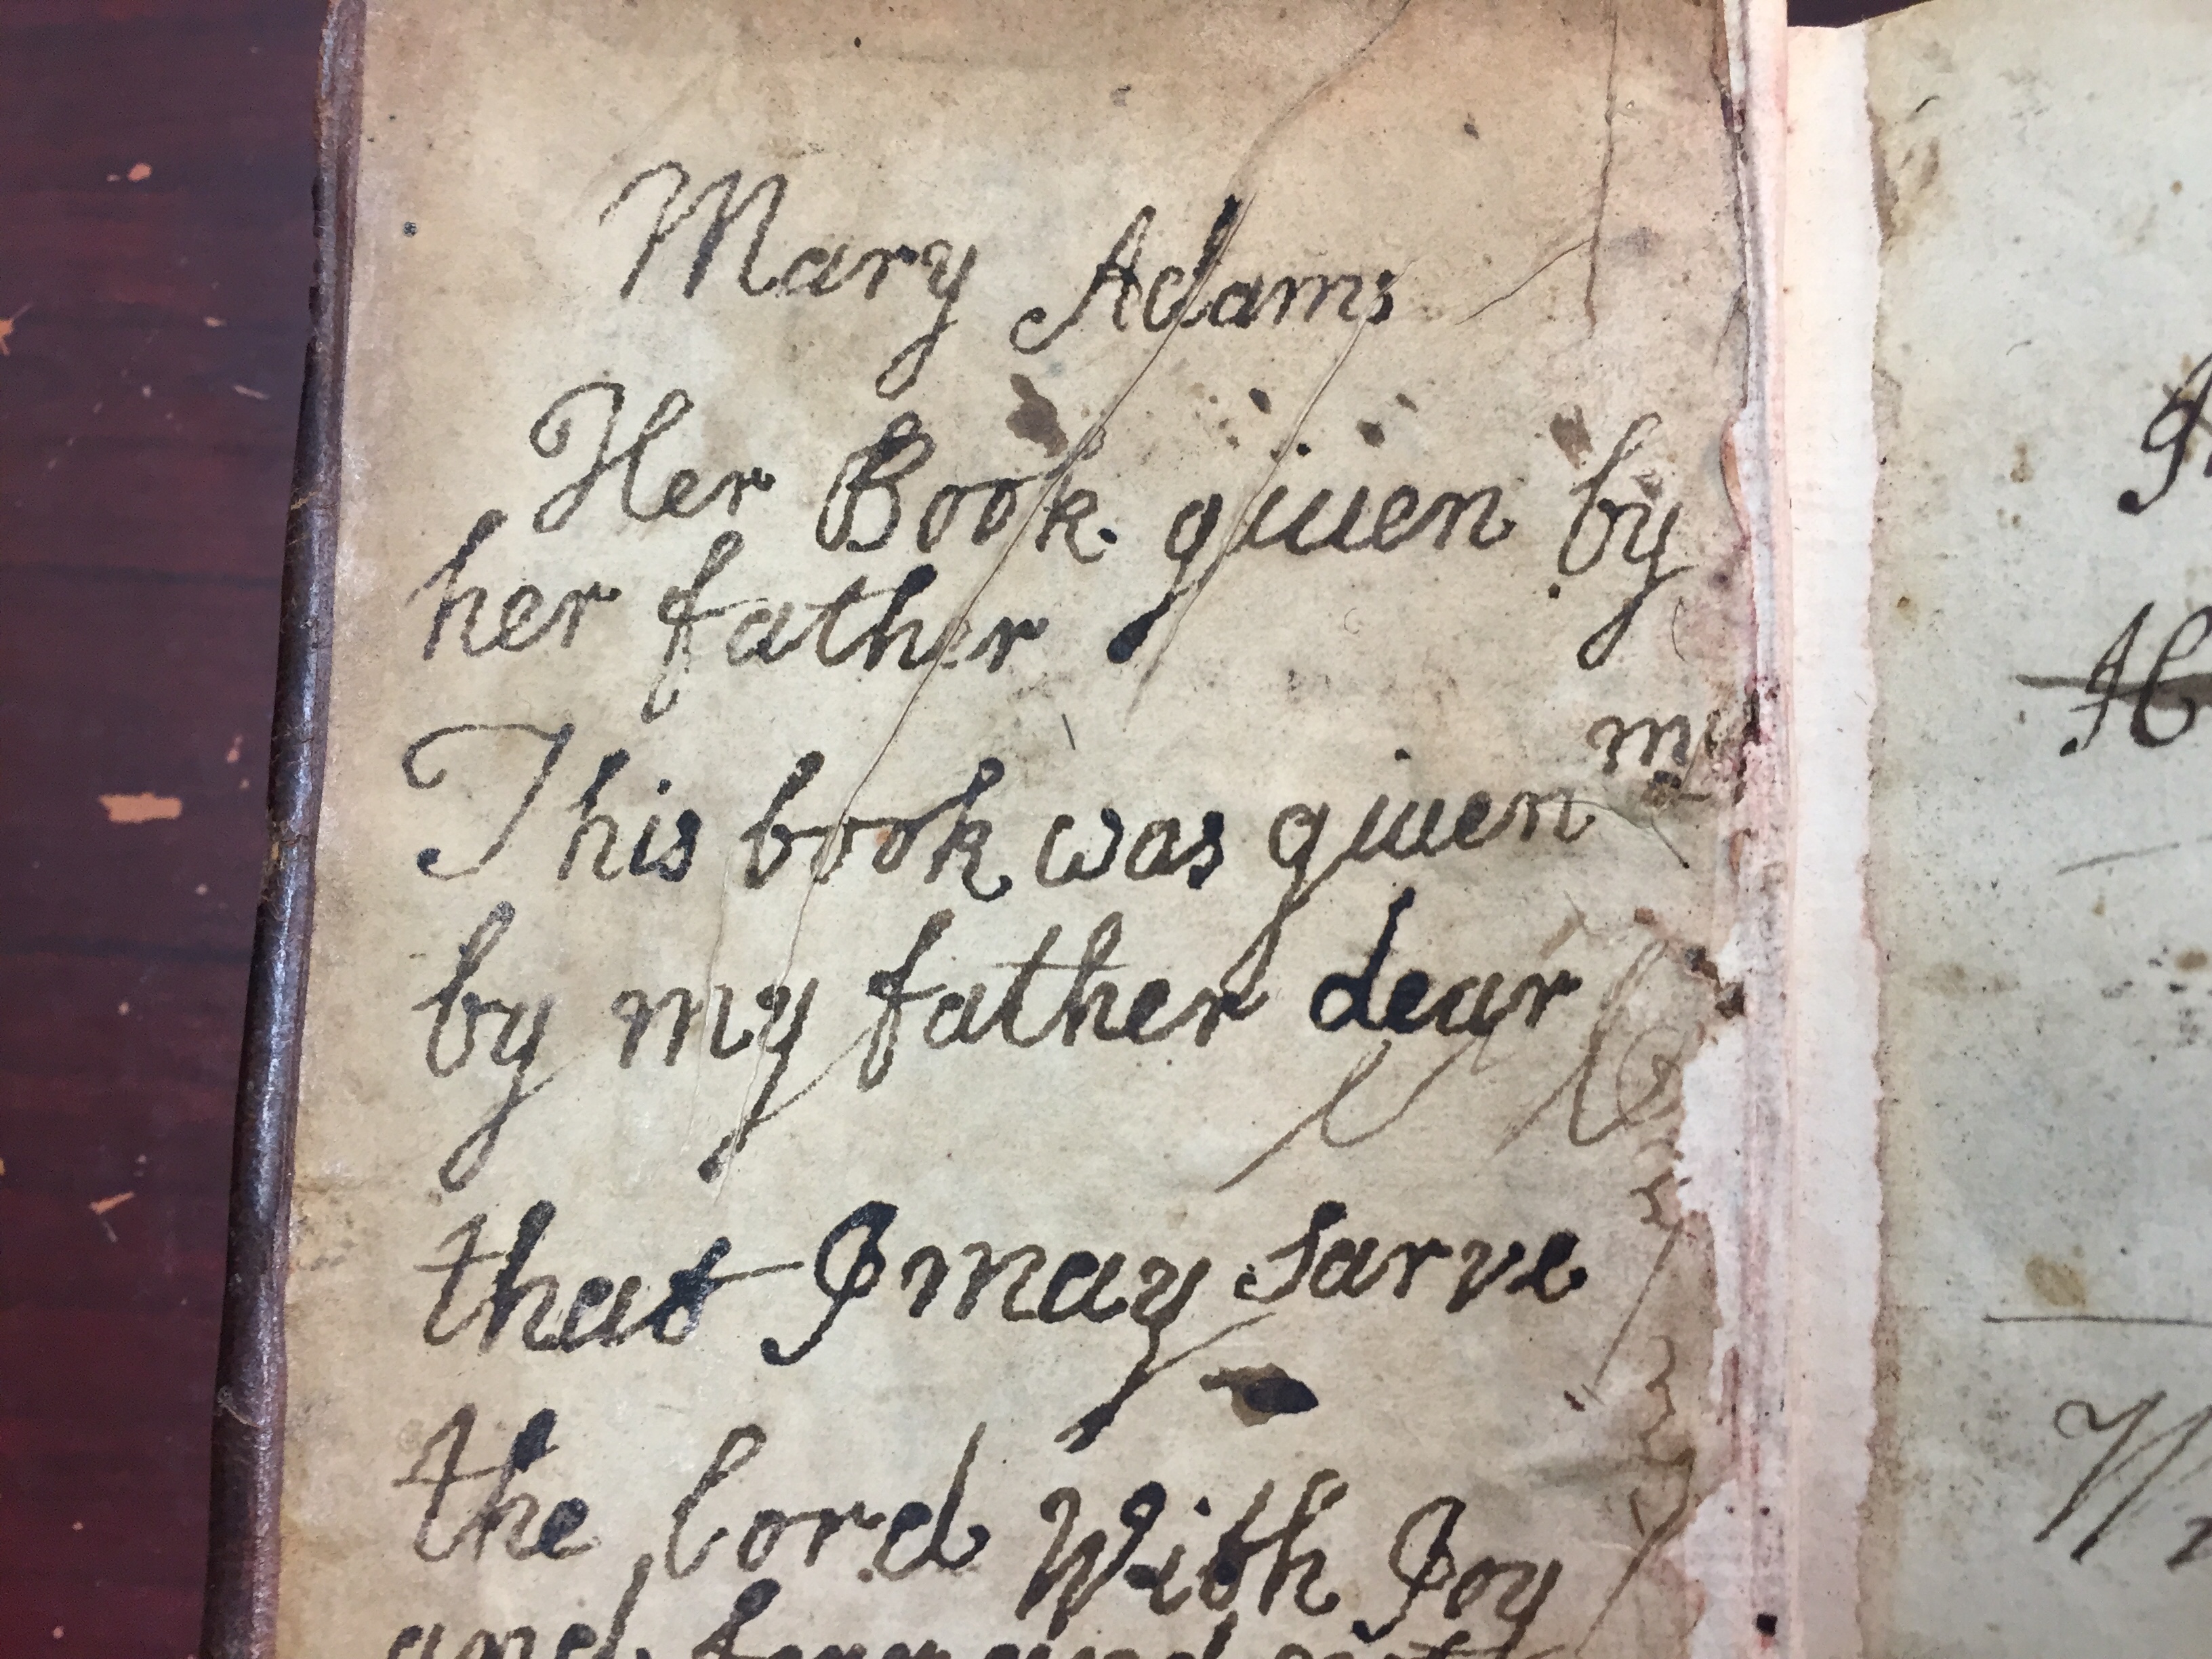 Mary Adams
Her Book giuen by
her father
my
This book was giuen
by my father dear
that I may sarve
the lord With Joy
and